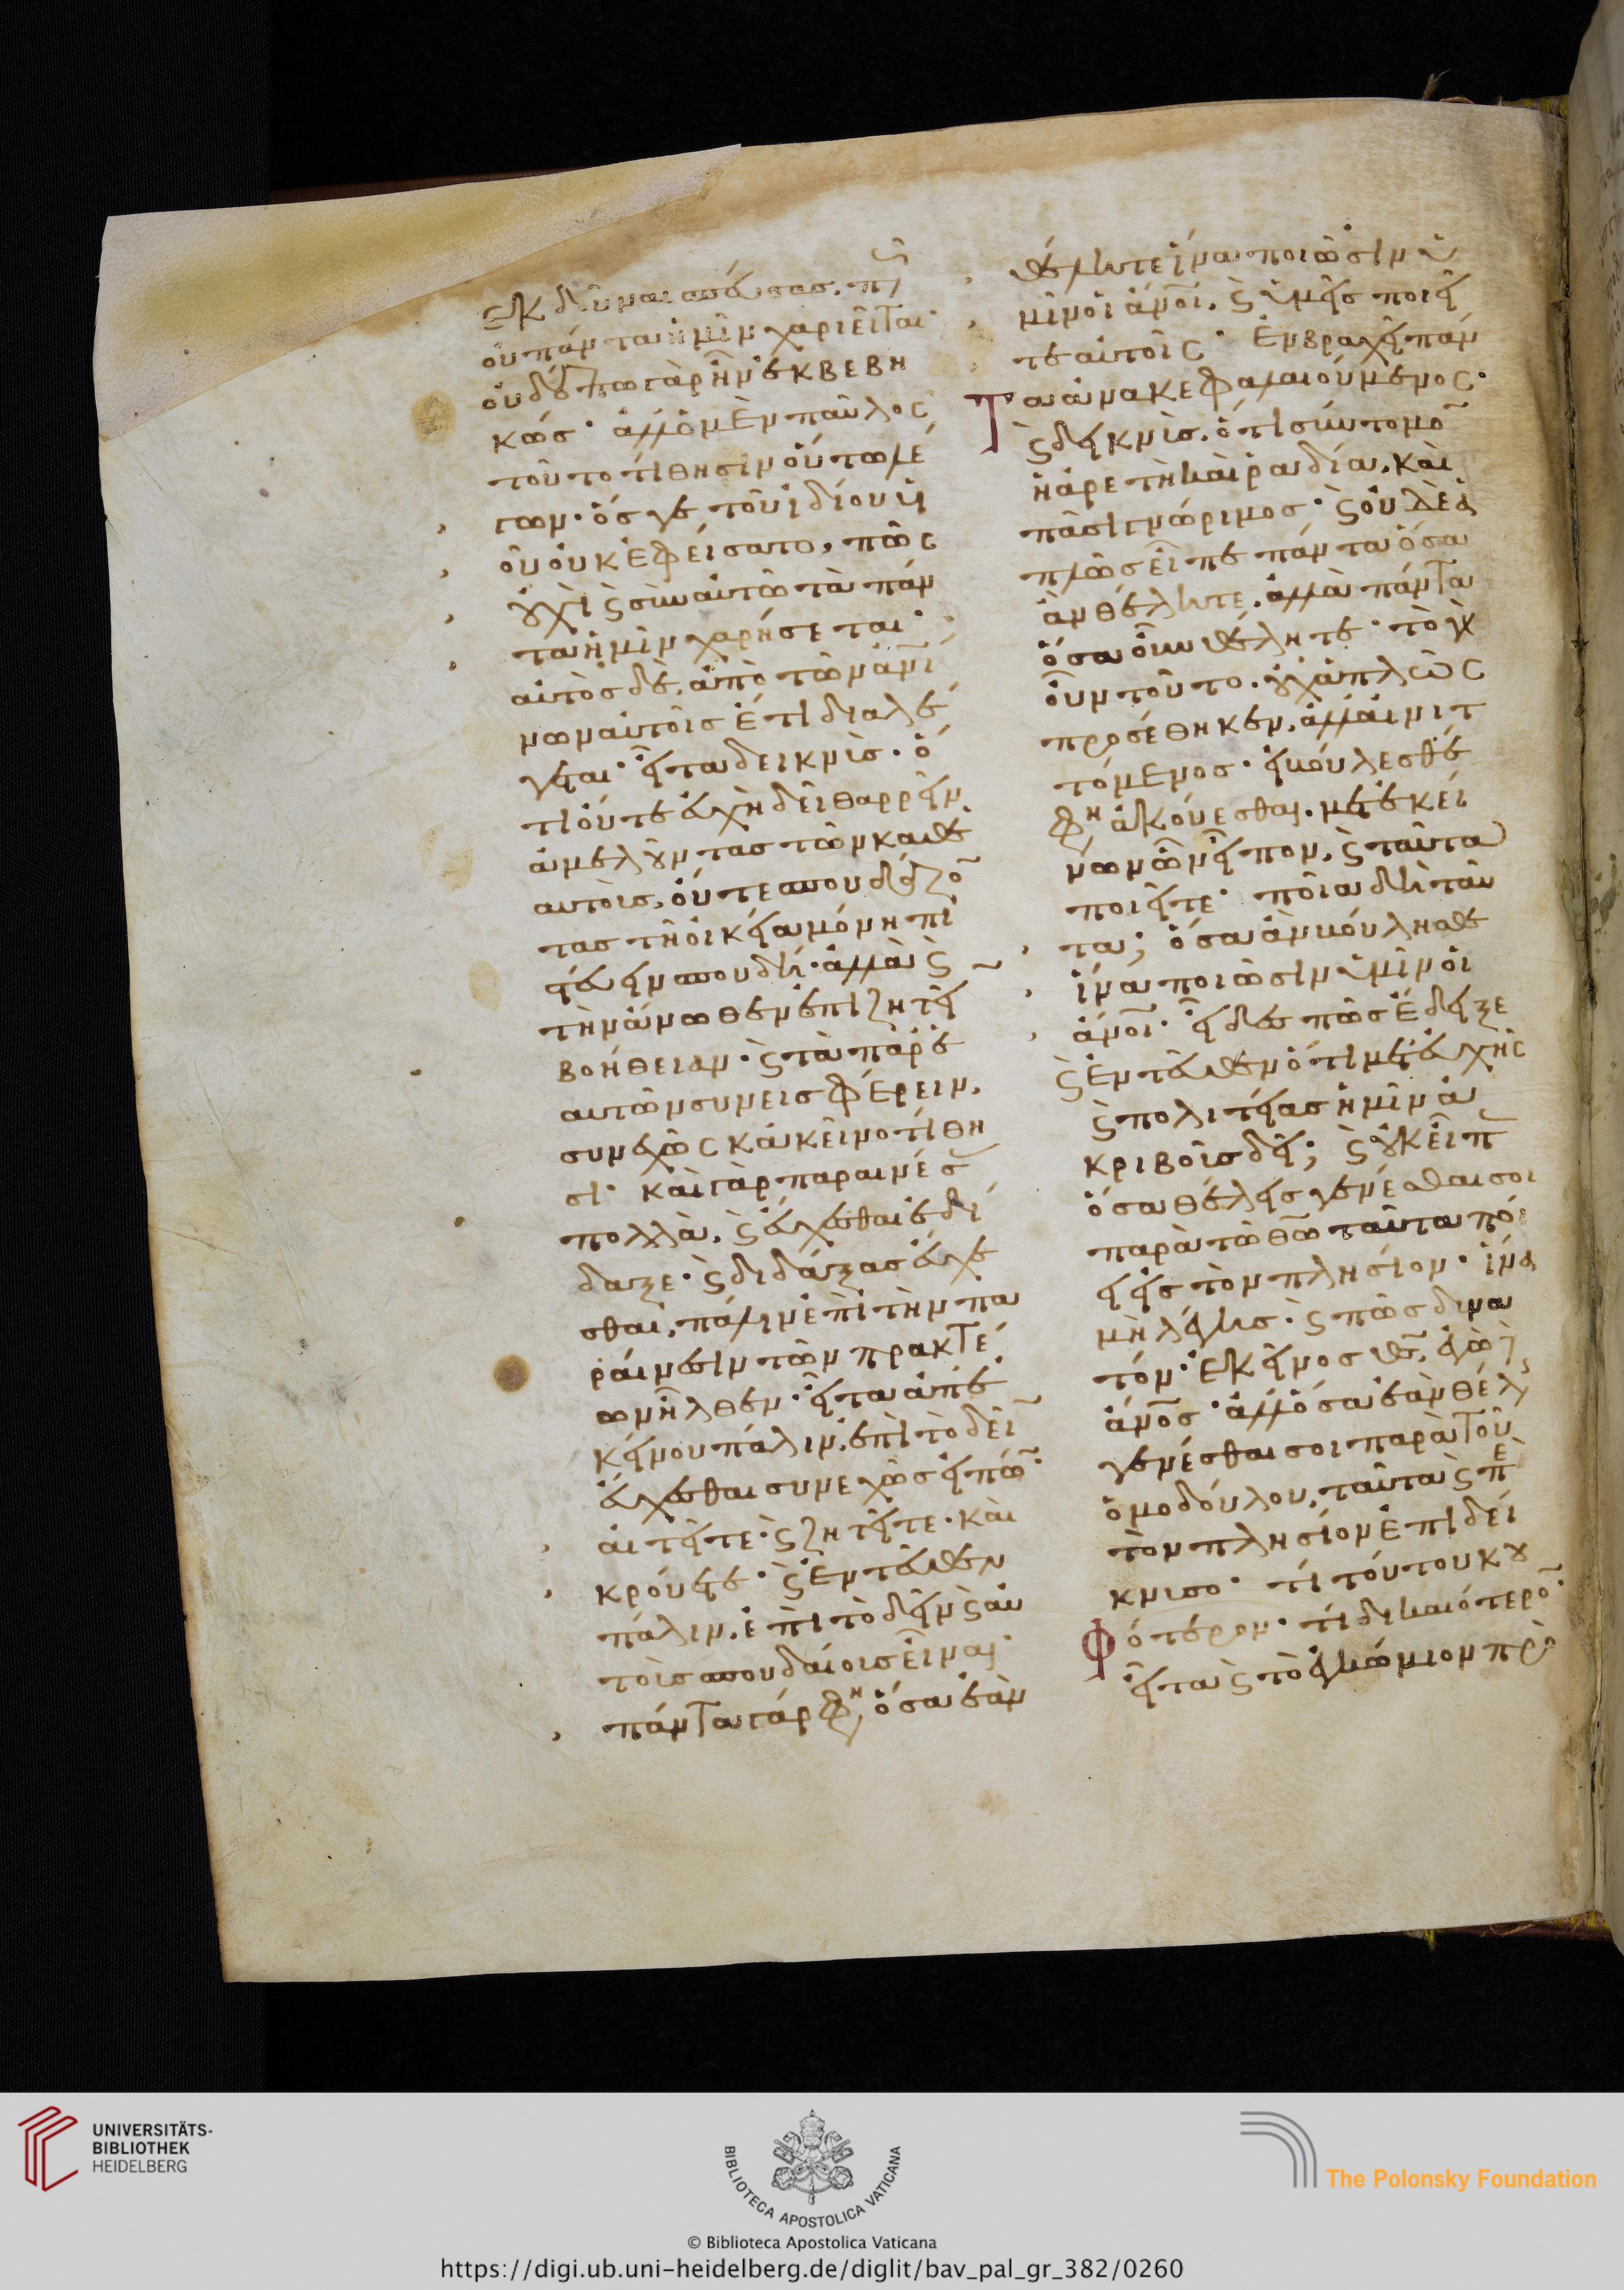 ἐκδοῦναι σφάξας. πῶς
οὐ πάντα ἡμῖν χαριεῖται·
οὐδέπω γὰρ ἦν ἐκβεβη
κώς· ἀλλ' ὁ μὲν παῦλος
τοῦτο τίθησιν οὕτω λέ
γων· ὅς γε τοῦ ἰδίου υἱ
οῦ οὐκ ἐφείσατο, πῶς
οὐχὶ καὶ σὺν αὐτῶ τὰ πάν
τα ἡμῖν χαρήσεται·
αὐτὸς δὲ, ἀπὸ τῶν ἀνθρωπί
νων αὐτοῖς ἔτι διαλέ
γεται· εἶτα δεικνὺς· ὅ
τι οὔτε εὐχῆ δεῖ θαρρεῖν
ἀμελοῦντας τῶν καθ' ἑ
αυτοῖς, οὔτε σπουδάζον
τας τῆ οἰκεία μόνη πι
στεύειν σπουδῆ· ἀλλὰ καὶ
τὴν ἄνωθεν ἐπιζητεῖν
βοήθειαν· καὶ τὰ παρ' ἑ
αυτῶν συνεισφέρειν.
συνεχῶς κἀκεῖνο τίθη
σι· καὶ γὰρ παραινέσας
πολλὰ, καὶ εὔχεσθαι ἐδί
δαξε· καὶ διδάξας εὔχε
σθαι, πάλιν ἐπὶ τὴν πα
ραίνεσιν τῶν πρακτέ
ων ἦλθεν· εἶτα ἀπ' ἐ
κείνου πάλιν, ἐπὶ τὸ δεῖν
εὔχεσθαι συνεχῶς εἰπών·
αἰτεῖτε· καὶ ζητεῖτε· καὶ
κρούετε· καὶ ἐντεῦθεν
πάλιν, ἐπὶ τὸ δεῖν καὶ αὐ
τοῖς σπουδαίοις εἶναι·
πάντα γάρ φησιν, ὅσα ἐὰν
θέλητε ἵνα ποιῶσιν ὑ
μῖν οἱ ἄνθρωποι, καὶ ὑμεῖς ποιεῖ
τε αὐτοῖς· ἐν βραχεῖ πάν
τα ἀνακεφαλαιούμενος·
καὶ δεικνὺς, ὅτι σύντομον
ἡ ἀρετὴ καὶ ῥαδία, καὶ
πᾶσι γνώριμος· καὶ οὐδὲ ἁ
πλῶς εἶπε πάντα ὅσα
ἂν θέλητε, ἀλλὰ πάντα
ὅσα οὖν θέλητε· τὸ γὰρ
οὖν τοῦτο, οὐχ ἁπλῶς
προσέθηκεν, ἀλλ' αἰνιτ
τόμενος· εἰ βούλεσθέ
φησιν ἀκούεσθαι, μετ' ἐκεί
νων ὧν εἶπον, καὶ ταῦτα
ποιεῖτε· ποῖα δὴ ταῦ
τα; ὅσα ἂν βούλησθε
ἵνα ποιῶσιν ὑμῖν οἱ
ἄνθρωποι· εἶδες πῶς ἔδειξε
καὶ ἐντεῦθεν ὅτι μετ' εὐχῆς
καὶ πολιτείας ἡμῖν ἀ
κριβοῦς δεῖ; καὶ οὐκ εἶπεν
ὅσα θέλεις γενέσθαι σοι
παρὰ τῶ θεῶ ταῦτα ποί
ει εἰς τὸν πλησίον· ἵνα
μὴ λέγης· καὶ πῶς δυνα
τόν· ἐκεῖνος θεός, ἐγὼ
ἄνθρωπος· ἀλλ' ὅσα ἐὰν θέλης
γενέσθαι σοι παρὰ τοῦ
ὁμοδούλου, ταῦτα καὶ περὶ
τὸν πλησίον ἐπιδεί
κνυσο· τί τούτου κου
φότερον· τί δικαιότερον·
εἶτα καὶ τὸ ἐγκώμιον πρὸ
UNIVERSITÄTS-
BIBLIOTHEK
HEIDELBERG
BIBLIOTECA APOSTOLICA VATICANA
The Polonsky Foundation
© Biblioteca Apostolica Vaticana
https://digi.ub.uni-heidelberg.de/diglit/bav_pal_gr_382/0260